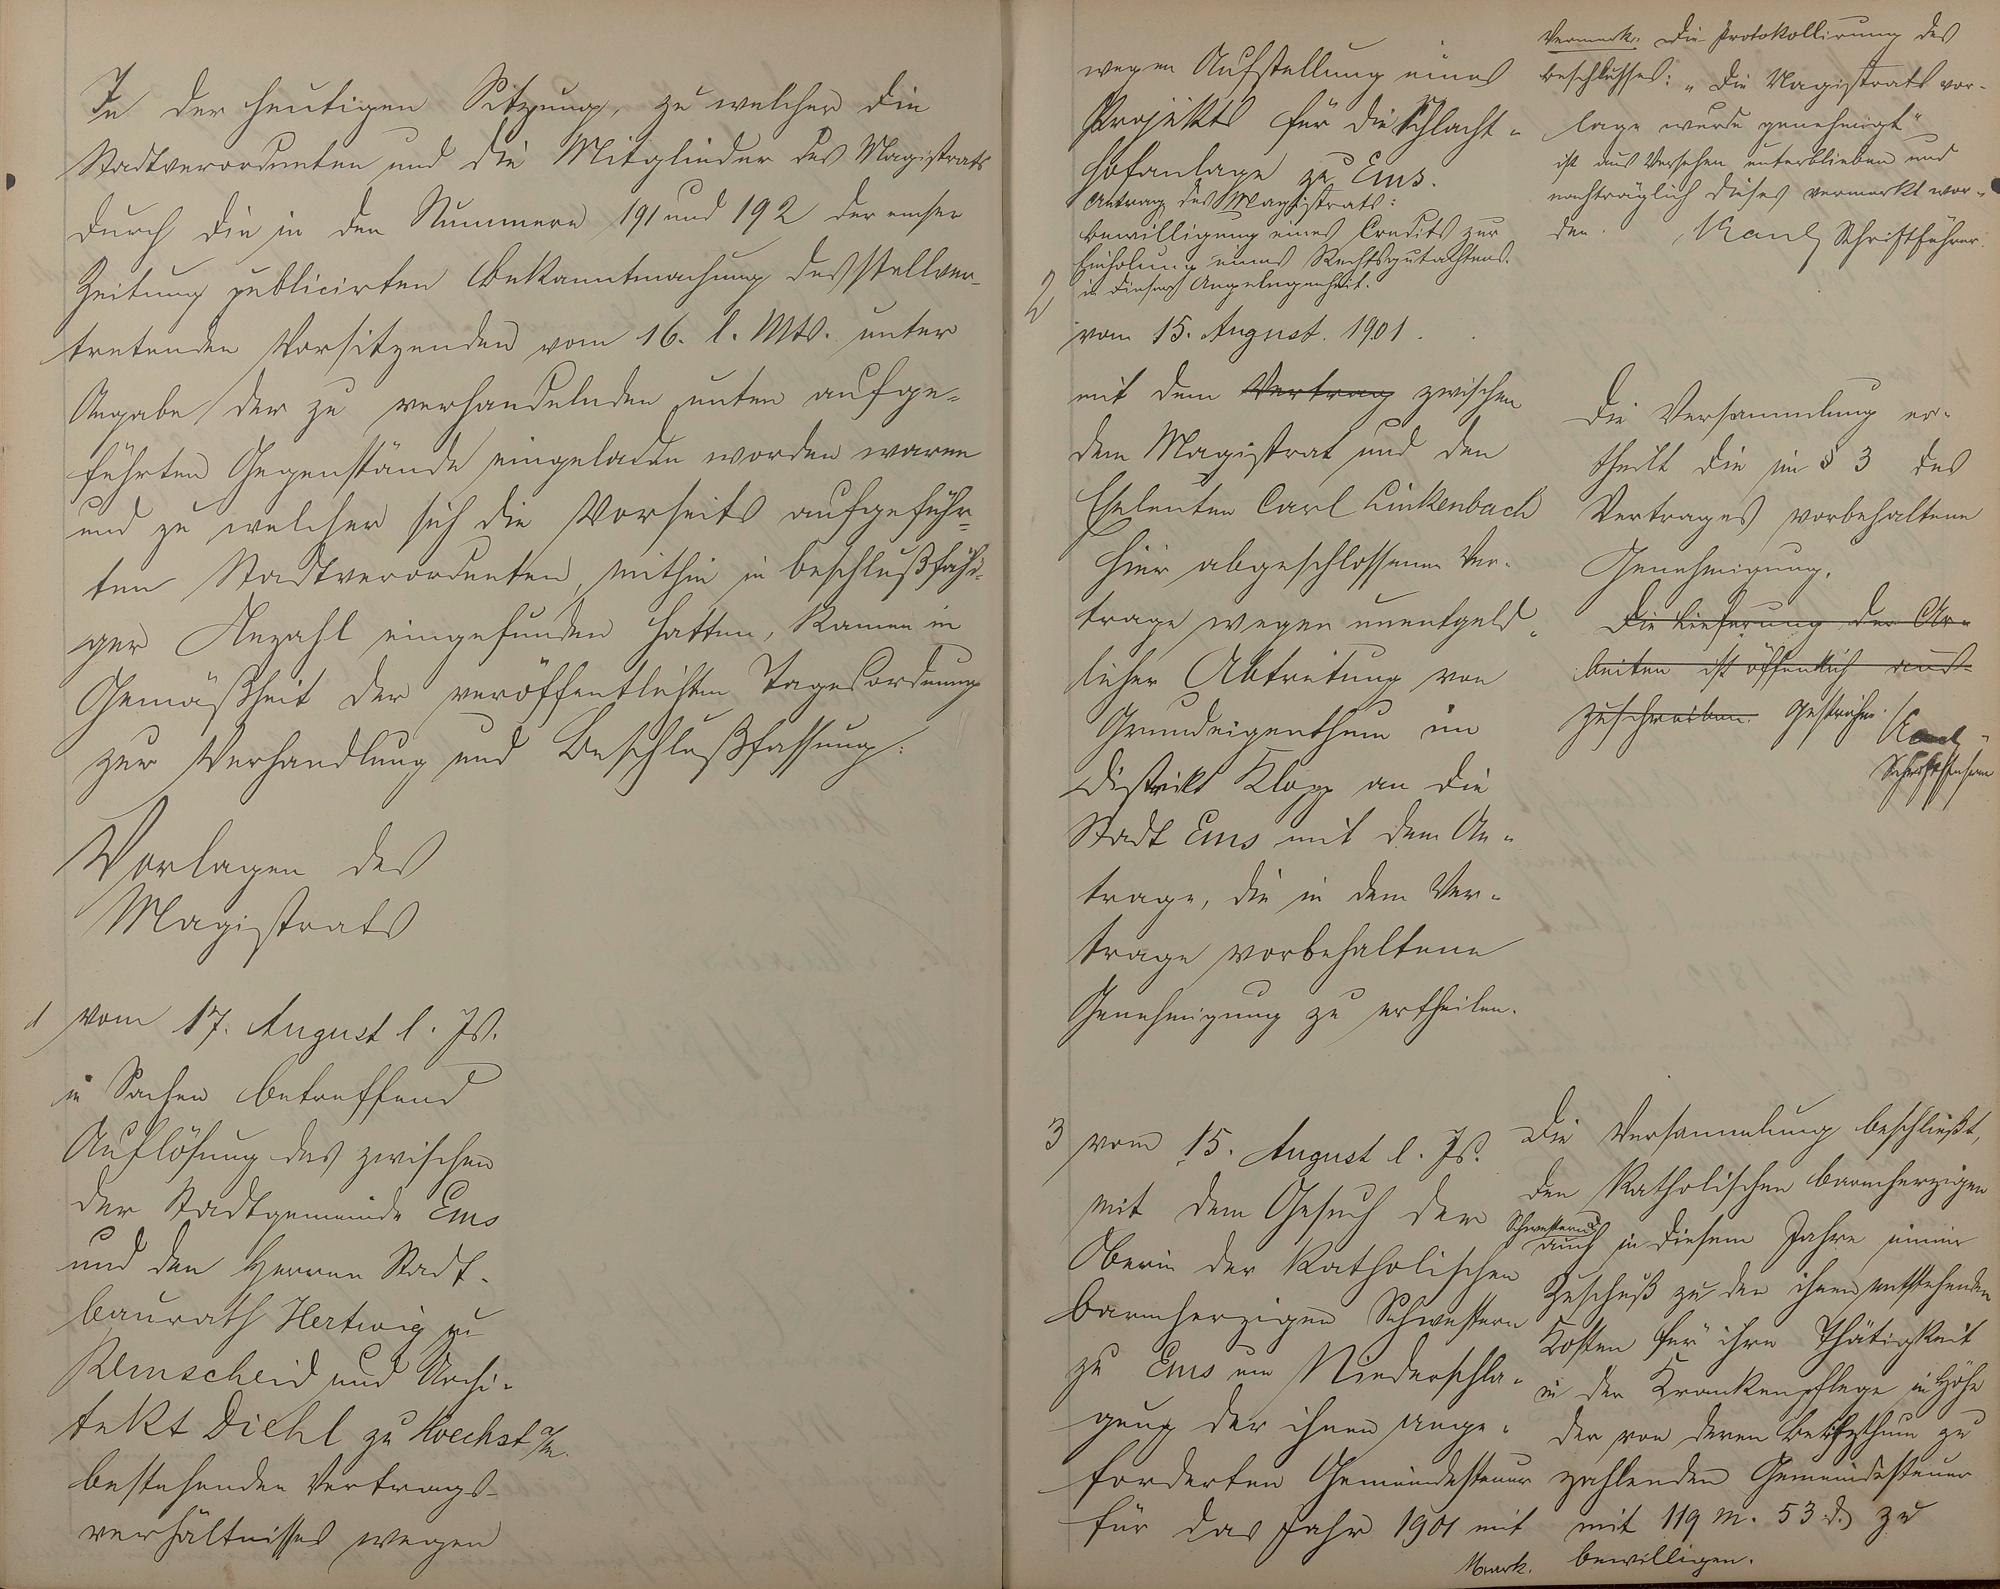 In der heutigen Sitzung, zu welcher die
Stadtverordneten und die Mitglieder des Magistrats
durch die in den Nummern 191 und 192 der emser
Zeitung publicirten Bekanntmachung des stellver-
tretenden Vorsitzenden vom 16. l. Mts. unter
Angabe der zu verhandelnden unten aufge-
führten Gegenstände eingeladen worden waren
und zu welcher sich die Vorseits aufgeführ-
ten Stadtverordneten, mithin in beschlußfähi-
ger Anzahl eingefunden hatten, kamen in
Gemäßheit der veröffentlichten Tagesordnung
zur Verhandlung und Beschlußfassung:
Vorlagen des
Magistrats
1 vom 17. August l. Js.
in Sachen betreffend
Auflösung des zwischen
der Stadtgemeinde Ems
und den Herren Stadt-
baurath Hertwig zu
Remscheid und Archi-
tekt Diehl zu Hoechst a/M.
bestehenden Vertrags-
verhältnisses wegen
wegen Aufstellung eines
Projekts für die Schlacht-
hofanlage zu Ems.
Antrag des Magistrats:
Bewilligung eines Credits zur
Einholung eines Rechtsgutachtens
in dieser Angelegenheit.
Vermerk: Die Protokollirung des
Beschlusses: „Die Magistrats vor-
lage wurde genehmigt“
ist aus Versehen unterblieben und
nachträglich dieses vermerkt wor-
den. Kaul Schriftführer.
2 vom 15. August. 1901.
mit dem Vertrag zwischen
dem Magistrat und den
Eheleuten Carl Linkenbach
hier abgeschlossenen Ver-
trage wegen unentgeld-
licher Abtretung von
Grundeigenthum im
Distrikt Klopp an die
Stadt Ems mit dem An-
trage, die in dem Ver-
trage vorbehaltene
Genehmigung zu ertheilen.
Die Versammlung er-
theilt die im § 3 des
Vertrages vorbehaltene
Genehmigung.
Die Lieferung der Ar-
beiten ist öffentlich aus-
zuschreiben. Gestrichen. Kaul
Schriftführer
3 vom 15. August l. Js.
mit dem Gesuch der
Oberin der Katholischen
barmherzigen Schwestern
zu Ems um Niederschla-
gung der ihnen ange-
forderten Gemeindesteuer
für das Jahr 1901 mit
Mark.
Die Versammlung beschließt,
den Katholischen barmherzigen
Schwestern auch in diesem Jahre einen
Zuschuß zu den ihnen entstehenden
Kosten für ihre Thätigkeit
in der Krankenpflege in Höhe
der von deren Besitzthum zu
zahlenden Gemeindesteuer
mit 119 M. 53 d. zu
bewilligen.